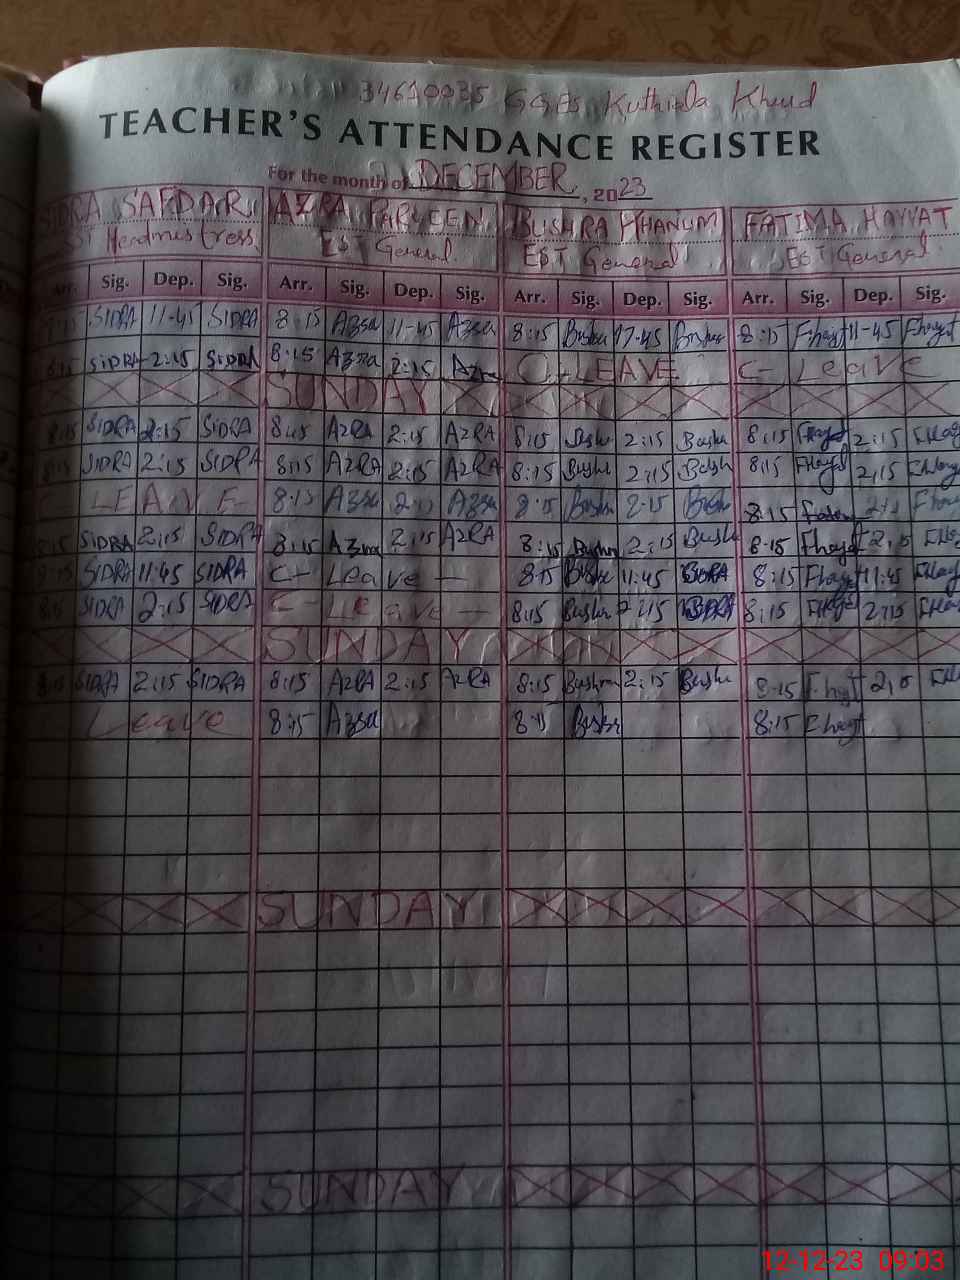 34610035 GGES Kuthiala Khurd
TEACHER'S ATTENDANCE REGISTER
For the month of DECEMBER, 2023
SIDRA SAFDAR AZRA PARVEEN BUSHRA KHANUM FATIMA HAYYAT
EST Headmistress EST General EST General EST General
Arr. Sig. Dep. Sig. Arr. Sig. Dep. Sig. Arr. Sig. Dep. Sig. Arr. Sig. Dep. Sig.
8:15 SIDRA 11-45 SIDRA 8:15 Azra 11-45 Azra 8:15 Bushra 11-45 Bushra 8:15 Fhayat 11-45 Fhayat
8:15 SIDRA 2:15 SIDRA 8:15 Azra 2:15 Azra C-LEAVE C-Leave
SUNDAY
8:15 SIDRA 2:15 SIDRA 8:15 AZRA 2:15 AZRA 8:15 2:15 Bushr 8:15 Fhayat 2:15
8:15 SIDRA 2:15 SIDRA 8:15 AZRA 2:15 AZRA 8:15 Bushr 2:15 Bushr 8:15 Fhayat 2:15
LEAVE 8:15 Azra 2:15 Azra 8:15 Bushr 2:15 Bushr 8:15
8:15 SIDRA 2:15 SIDRA 8:15 Azra 2:15 AZRA 8:15 Bushr 2:15 Bushr 8:15 Fhayat 2:15
8:15 SIDRA 11:45 SIDRA C-Leave- 8:15 11:45 8:15 Fhayat 11:45
8:15 SIDRA 2:15 SIDRA C-Leave- 8:15 Bushra 2:15 8:15 2:15
SUNDAY
8:15 SIDRA 2:15 SIDRA 8:15 AZRA 2:15 AZRA 8:15 Bushra 2:15 Bushr 8:15 Fhayat 2:15
Leave 8:15 Azra 8:15 Bushr 8:15 Fhayat
SUNDAY
SUNDAY
12-12-23 09:03